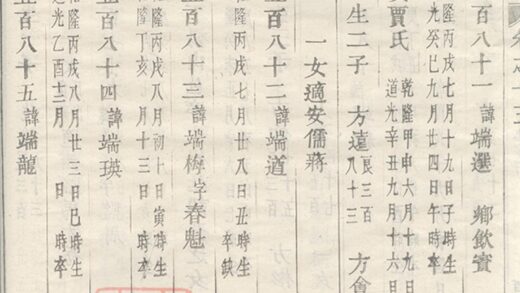 之十三
百八十一 諱端選 鄉飲賓
隆丙戌七月十九日子時生
光癸巳九月廿四日午時卒
賈氏
乾隆甲申六月十九日
道光辛丑九月十六日
生二子 方遠 良三百八十三 方會
一女適安儒蔣
百八十二 諱端道
隆丙戌七月廿八日丑時生
卒缺
百八十三 諱端梅字春魁
隆丙戌八月初十日寅時生
隆丁亥 月十三日 時卒
百八十四 諱端瑛
隆丙戌八月廿三日巳時生
道光乙酉十二月 日 時卒
百八十五 諱端龍